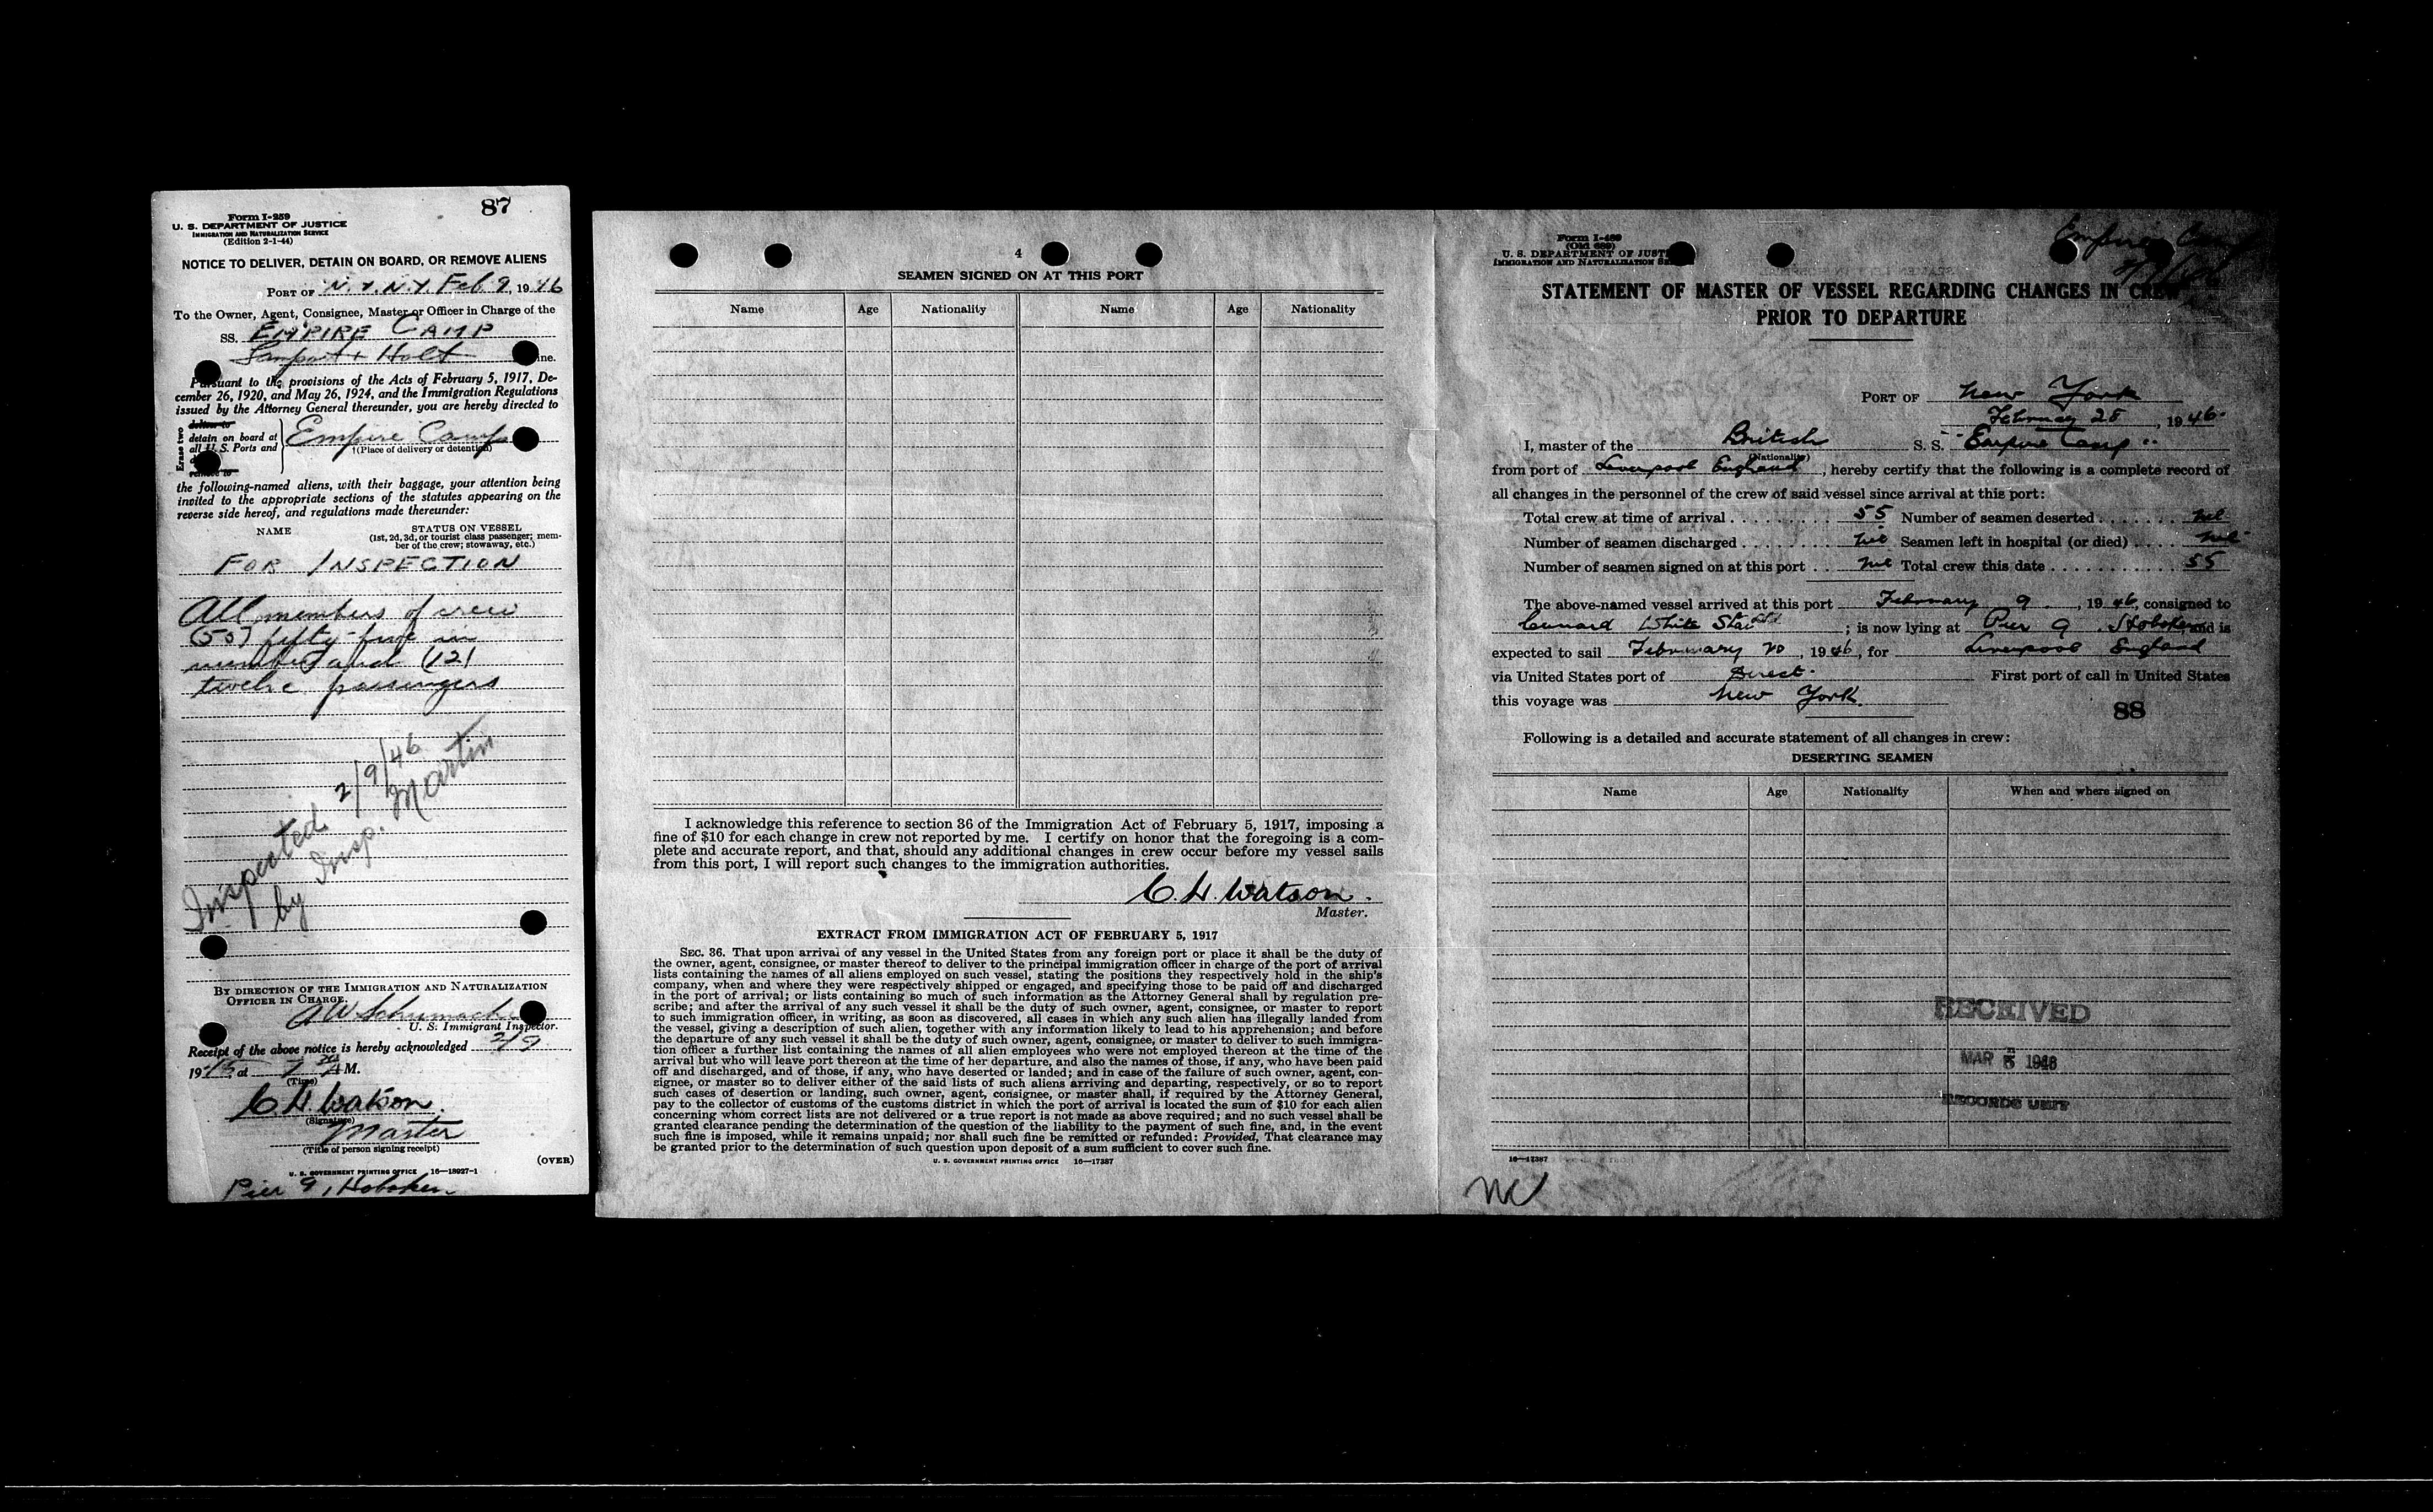 87
Form I-259
U. S. DEPARTMENT OF JUSTICE
IMMIGRATION AND NATURALIZATION SERVICE
(Edition 2-1-44)
NOTICE TO DELIVER, DETAIN ON BOARD, OR REMOVE ALIENS
PORT OF N. Y. N. Y. Feb 9, 1946
To the Owner, Agent, Consignee, Master or Officer in Charge of the
SS. EMPIRE CAMP
Lamport + Holt ine.
Pursuant to the provisions of the Acts of February 5, 1917, De-
cember 26, 1920, and May 26, 1924, and the Immigration Regulations
issued by the Attorney General thereunder, you are hereby directed to
Erase two
deliver to
detain on board at
all U. S. Ports and
Empire Camp
†(Place of delivery or detention)
remove to
the following-named aliens, with their baggage, your attention being
invited to the appropriate sections of the statutes appearing on the
reverse side hereof, and regulations made thereunder:
NAME STATUS ON VESSEL
(1st, 2d, 3d, or tourist class passenger; mem-
ber of the crew; stowaway, etc.)
FOR INSPECTION
All members of crew
(55) fifty-five in
number and (12)
twelve passengers
Inspected 2/9/46
by Insp. Martin
BY DIRECTION OF THE IMMIGRATION AND NATURALIZATION
OFFICER IN CHARGE.
A W Schumach
U. S. Immigrant Inspector.
Receipt of the above notice is hereby acknowledged 2/9
19 at 7 A M.
(Time)
C H Watson
(Signature)
Master
(Title of person signing receipt)
(OVER)
U. S. GOVERNMENT PRINTING OFFICE 16—18927-1
Pier 9, Hoboken
4
SEAMEN SIGNED ON AT THIS PORT
Name Age Nationality Name Age Nationality
I acknowledge this reference to section 36 of the Immigration Act of February 5, 1917, imposing a
fine of $10 for each change in crew not reported by me. I certify on honor that the foregoing is a com-
plete and accurate report, and that, should any additional changes in crew occur before my vessel sails
from this port, I will report such changes to the immigration authorities.
C. H. Watson.
Master.
EXTRACT FROM IMMIGRATION ACT OF FEBRUARY 5, 1917
SEC. 36. That upon arrival of any vessel in the United States from any foreign port or place it shall be the duty of
the owner, agent, consignee, or master thereof to deliver to the principal immigration officer in charge of the port of arrival
lists containing the names of all aliens employed on such vessel, stating the positions they respectively hold in the ship's
company, when and where they were respectively shipped or engaged, and specifying those to be paid off and discharged
in the port of arrival; or lists containing so much of such information as the Attorney General shall by regulation pre-
scribe; and after the arrival of any such vessel it shall be the duty of such owner, agent, consignee, or master to report
to such immigration officer, in writing, as soon as discovered, all cases in which any such alien has illegally landed from
the vessel, giving a description of such alien, together with any information likely to lead to his apprehension; and before
the departure of any such vessel it shall be the duty of such owner, agent, consignee, or master to deliver to such immigra-
tion officer a further list containing the names of all alien employees who were not employed thereon at the time of the
arrival but who will leave port thereon at the time of her departure, and also the names of those, if any, who have been paid
off and discharged, and of those, if any, who have deserted or landed; and in case of the failure of such owner, agent, con-
signee, or master so to deliver either of the said lists of such aliens arriving and departing, respectively, or so to report
such cases of desertion or landing, such owner, agent, consignee, or master shall, if required by the Attorney General,
pay to the collector of customs of the customs district in which the port of arrival is located the sum of $10 for each alien
concerning whom correct lists are not delivered or a true report is not made as above required; and no such vessel shall be
granted clearance pending the determination of the question of the liability to the payment of such fine, and, in the event
such fine is imposed, while it remains unpaid; nor shall such fine be remitted or refunded: Provided, That clearance may
be granted prior to the determination of such question upon deposit of a sum sufficient to cover such fine.
U. S. GOVERNMENT PRINTING OFFICE 16—17387
Empire Camp
Form I-489
(Old 689)
U. S. DEPARTMENT OF JUST
IMMIGRATION AND NATURALIZATION SE
STATEMENT OF MASTER OF VESSEL REGARDING CHANGES IN CREW
PRIOR TO DEPARTURE
PORT OF New York
February 28, 1946
I, master of the British S. S. "Empire Camp"
(Nationality)
from port of Liverpool England, hereby certify that the following is a complete record of
all changes in the personnel of the crew of said vessel since arrival at this port:
Total crew at time of arrival 55 Number of seamen deserted nil
Number of seamen discharged nil Seamen left in hospital (or died) nil
Number of seamen signed on at this port nil Total crew this date 55
The above-named vessel arrived at this port February 9, 1946, consigned to
Cunard White Star Ltd.; is now lying at Pier 9 Hoboken and is
expected to sail February 20, 1946, for Liverpool England
via United States port of Direct. First port of call in United States
this voyage was New York.
88
Following is a detailed and accurate statement of all changes in crew:
DESERTING SEAMEN
Name Age Nationality When and where signed on
RECEIVED
MAR 5 1946
RECORDS UNIT
16—17387